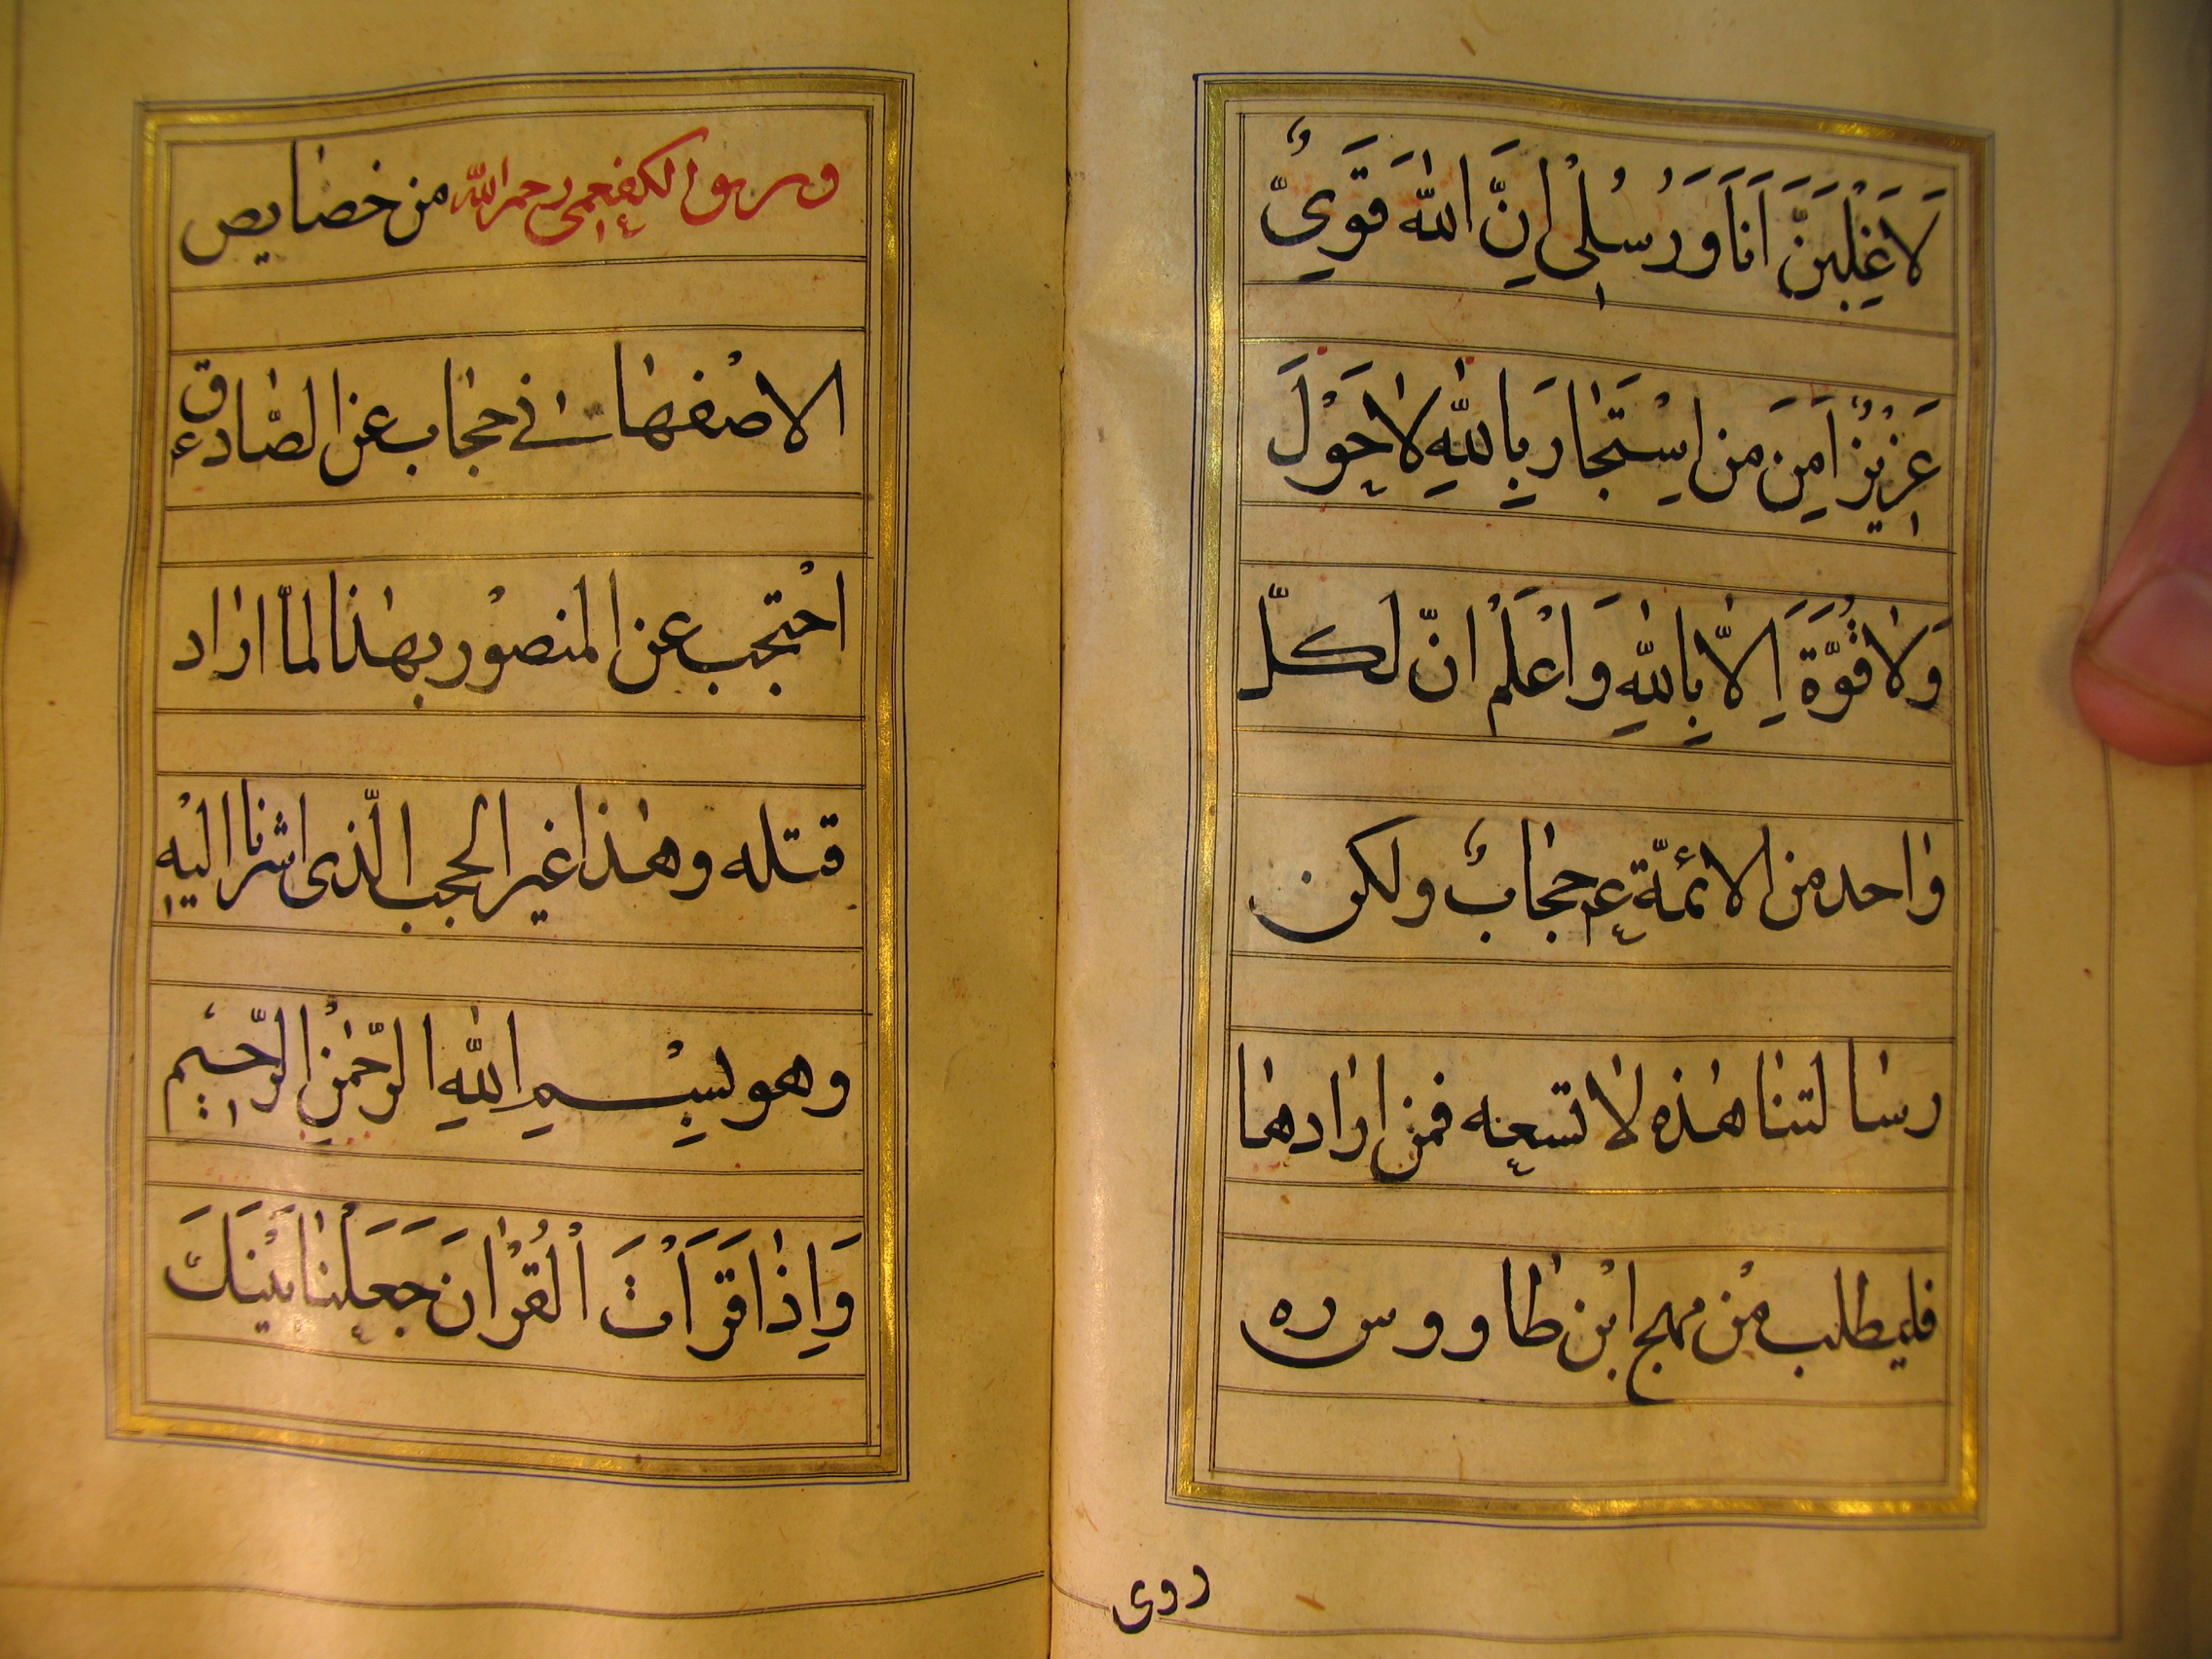 لَاَغْلِبَنَّ اَنَا وَرُسُلِىْ اِنَّ اللّٰهَ قَوِىٌّ
عَزِيْزٌ اَمِنَ مَنِ اسْتَجَارَ بِاللّٰهِ لَا حَوْلَ
وَلَا قُوَّةَ اِلَّا بِاللّٰهِ وَاعْلَمْ انّ لكلّ
واحد من الائمّة ع حجابٌ ولكن
رسالتنا هذه لا تسعه فمن ارادها
فليطلب من مهج ابن طاووس ره
روى
وروى الكفعمى رحمه اللّه من خصايص
الاصفهانى فى حجاب عن الصّادق ع
احْتجب عن المنصور بهذا لمّا اراد
قتله وهذا غير الحجب الّذى اشرنا اليْه
وهو بِسْمِ اللّٰهِ الرَّحْمٰنِ الرَّحِيْمِ
وَاِذَا قَرَاْتَ الْقُرْاٰنَ جَعَلْنَا بَيْنَكَ